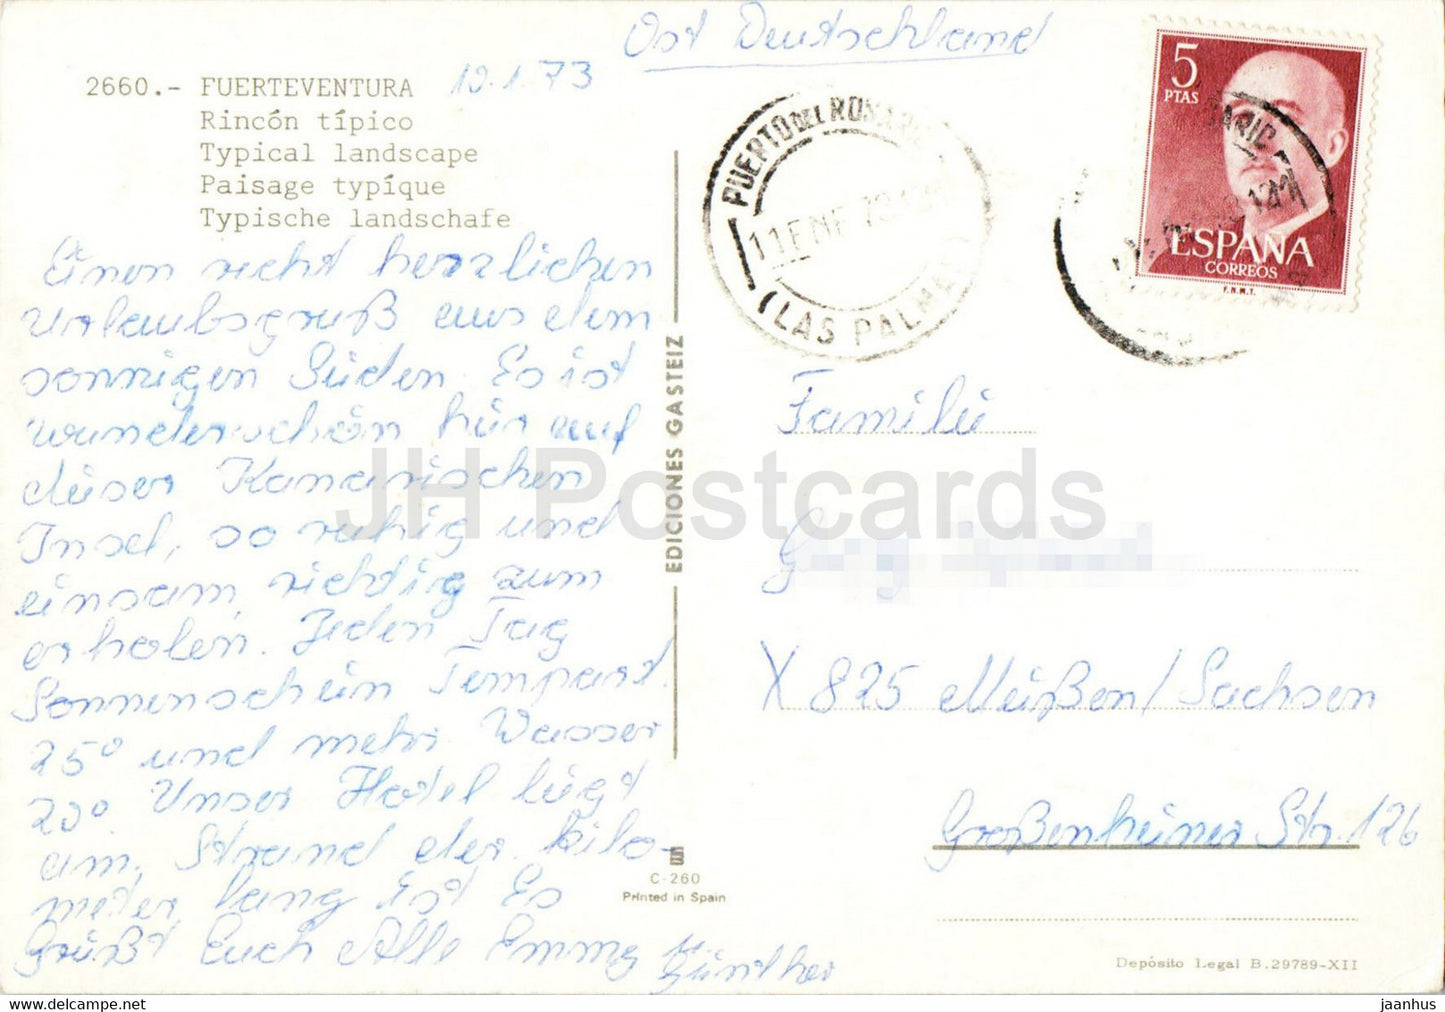 Ost Deutschland
2660.- FUERTEVENTURA 10.1.73
Rincón típico
Typical landscape
Paisage typíque
Typische landschafe
Einen recht herzlichen
Urlaubsgruß aus dem
sonnigen Süden. Es ist
wunderschön hier auf
dieser Kanarischen
Insel, so ruhig und
einsam, richtig zum
erholen. Jeden Tag
Sonnenschein Temparat.
25° und mehr. Wasser
20° Unser Hotel liegt
am Strand der kilo-
meter lang ist Es
Grüßt Euch Alle Emmy
Günther
EDICIONES GASTEIZ
C-260
Printed in Spain
PUERTO DEL ROSARIO
11 ENE 73
(LAS PALMAS)
5
PTAS
ESPAÑA
CORREOS
F.N.M.T.
Familie
X 825 Meißen/Sachsen
Großenheiner Str. 126
Depósito Legal B.29789-XII
JH Postcards
jaanhus